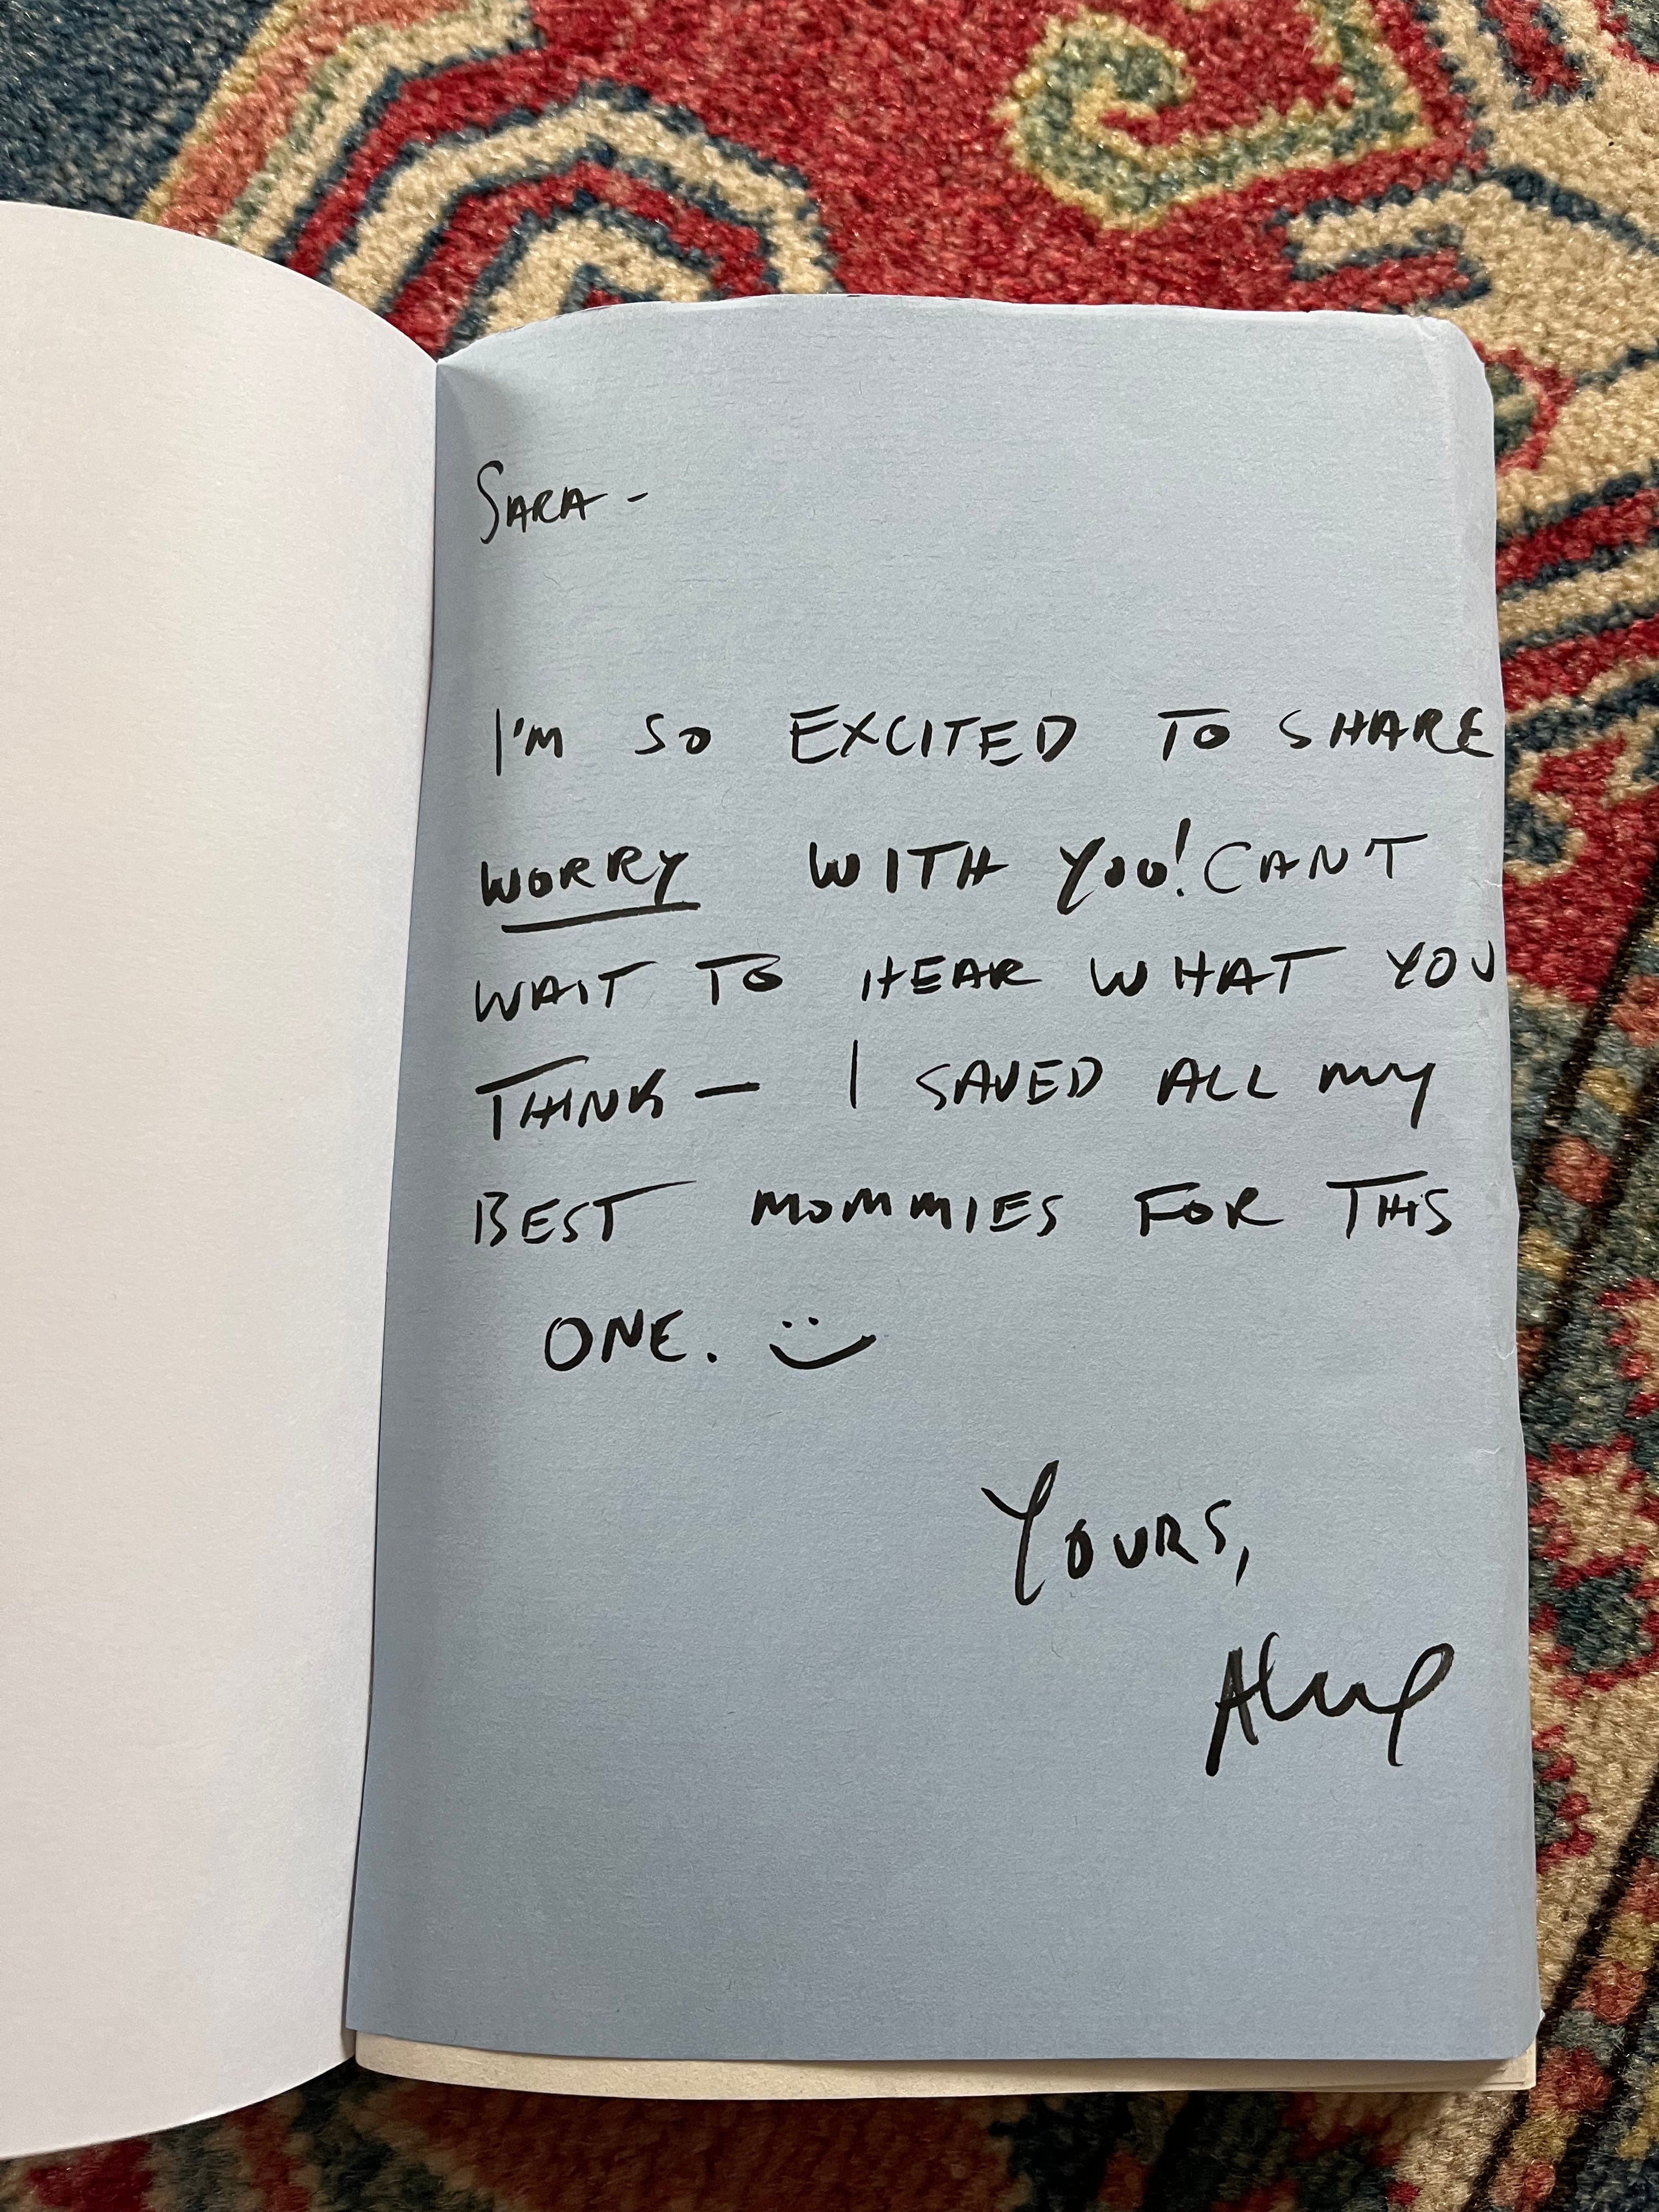 SARA -
I'M SO EXCITED TO SHARE
WORRY WITH YOU! CAN'T
WAIT TO HEAR WHAT YOU
THINK — I SAVED ALL MY
BEST MOMMIES FOR THIS
ONE. :)
YOURS,